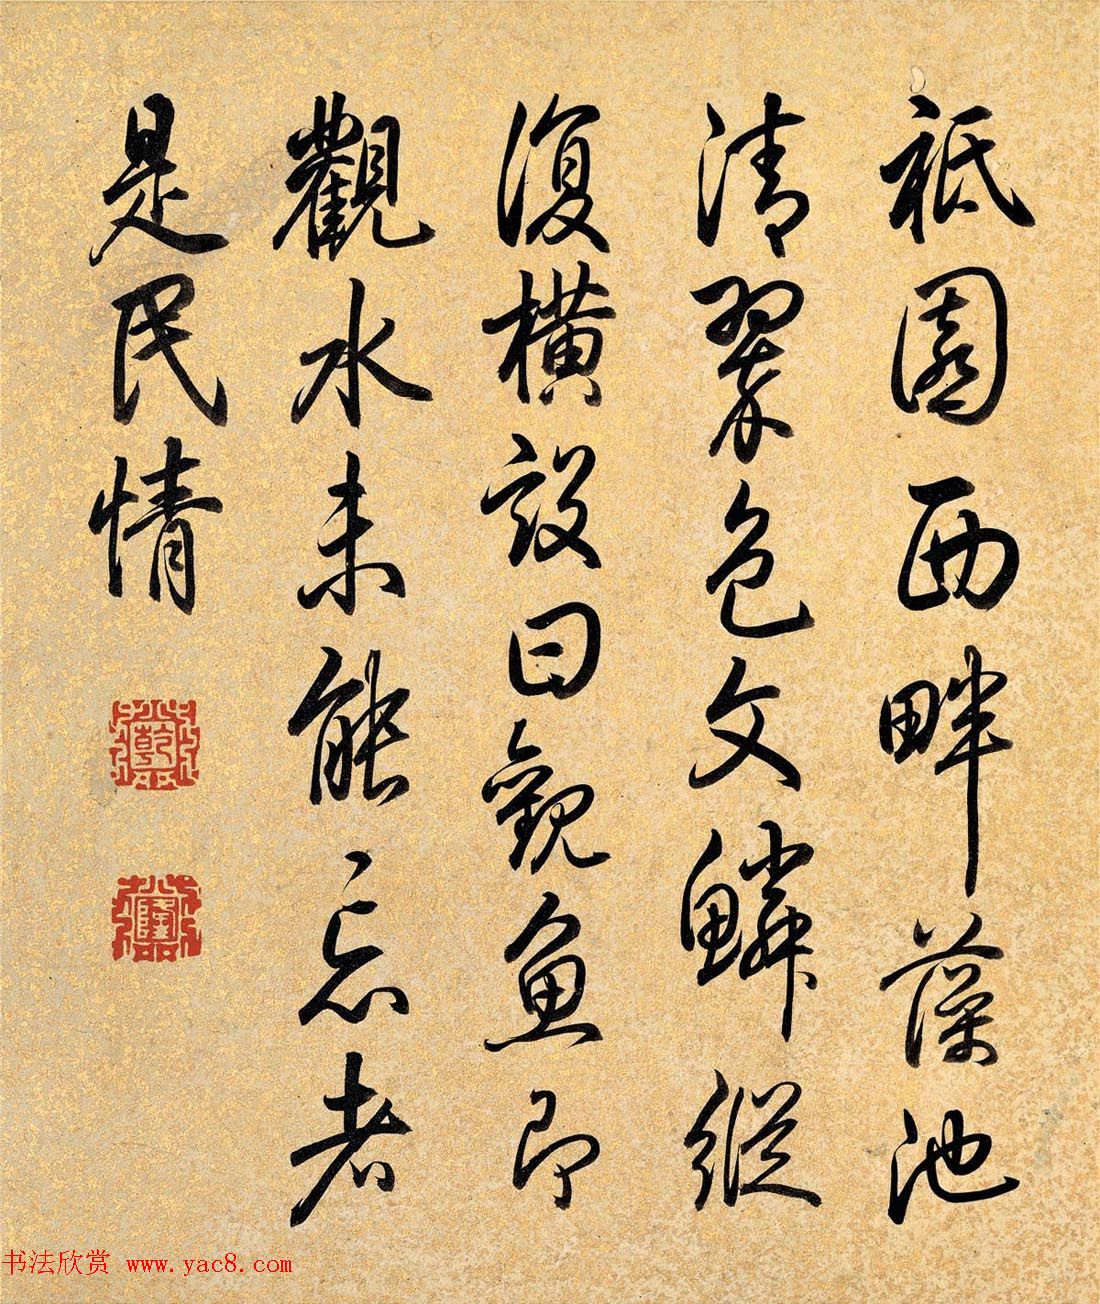 祇園西畔藻池
清翠色文鱗縱
復橫設曰觀魚即
觀水未能忘者
是民情
乾
隆
书法欣赏 www.yac8.com